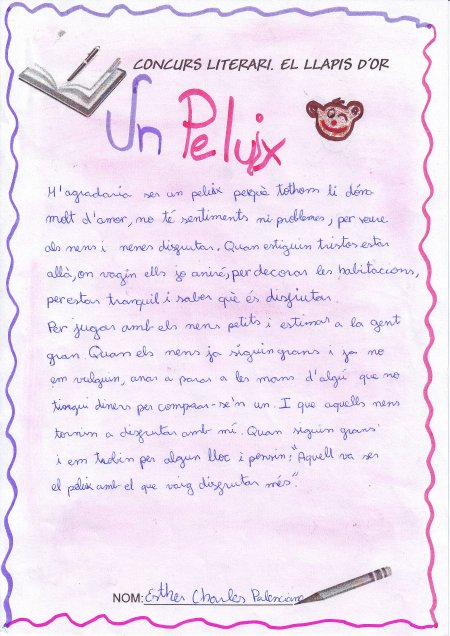 CONCURS LITERARI. EL LLAPIS D'OR
Un Peluix
M'agradaria ser un peluix perquè tothom li dóna
molt d'amor, no té sentiments ni problemes, per veure
als nens i nenes disfrutar. Quan estiguin tristos estar
allà, on vagin ells jo aniré, per decorar les habitacions,
per estar tranquil i saber què és disfrutar.
Per jugar amb els nens petits i estimar a la gent
gran. Quan els nens ja siguin grans i ja no
em vulguin, anar a parar a les mans d'algú que no
tingui diners per comprar-se'n un. I que aquells nens
tornin a disfrutar amb mi. Quan siguin grans
i em trobin per algun lloc i pensin: "Aquell va ser
el peluix amb el que vaig disfrutar més".
NOM: Esther Charles Palenciano